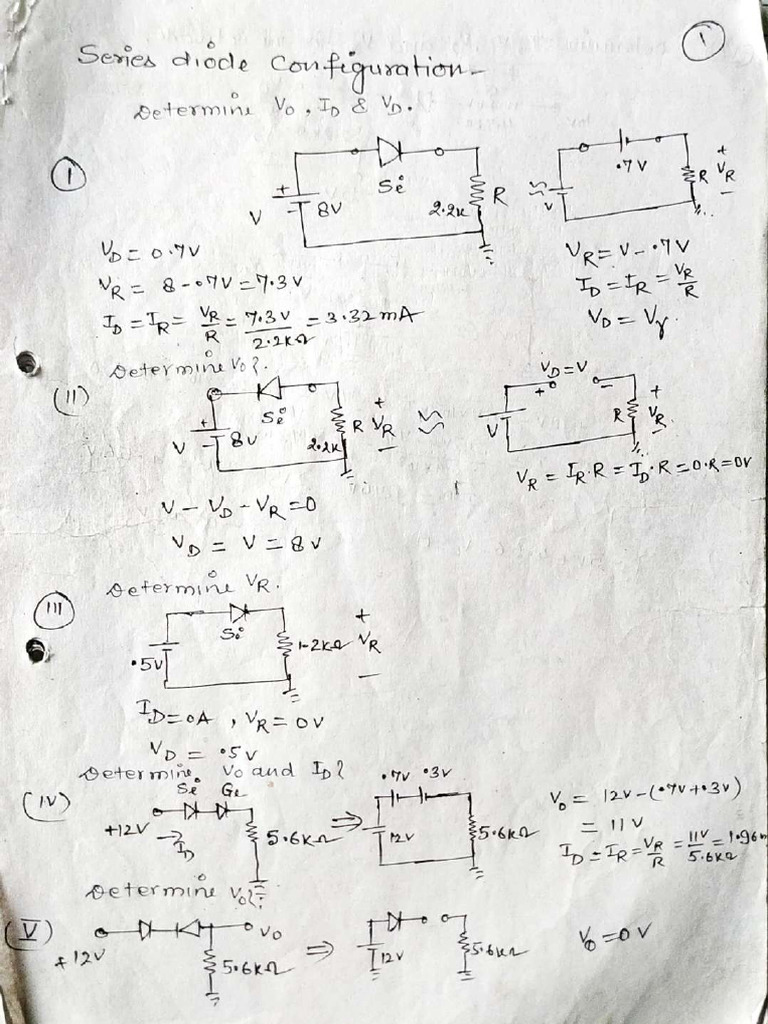 1
Series diode Configuration-
Determine Vo, ID & VD.
(I)
V + - 8V Si 2.2K R
V .7V R + VR -
VD = 0.7V
VR = 8-0.7V = 7.3V
ID = IR = VR/R = 7.3V/2.2KΩ = 3.32mA
VR = V-.7V
ID = IR = VR/R
VD = Vγ.
Determine Vo?.
(II)
V + - 8V Si 2.2K R + VR -
≈ V VD=V + - R + VR -
VR = IR.R = ID.R = 0.R = 0V
V - VD - VR = 0
VD = V = 8V
Determine VR.
(III)
.5V Si 1.2KΩ + VR -
ID = 0A, VR = 0V
VD = .5V
Determine Vo and ID?
(IV)
Si Ge
+12V → ID 5.6KΩ ⇒ .7V .3V 12V 5.6KΩ
Vo = 12V-(.7V+.3V)
= 11V
ID = IR = VR/R = 11V/5.6KΩ = 1.96m
Determine Vo?
(V)
+12V Vo 5.6KΩ ⇒ 12V 5.6KΩ
Vo = 0V